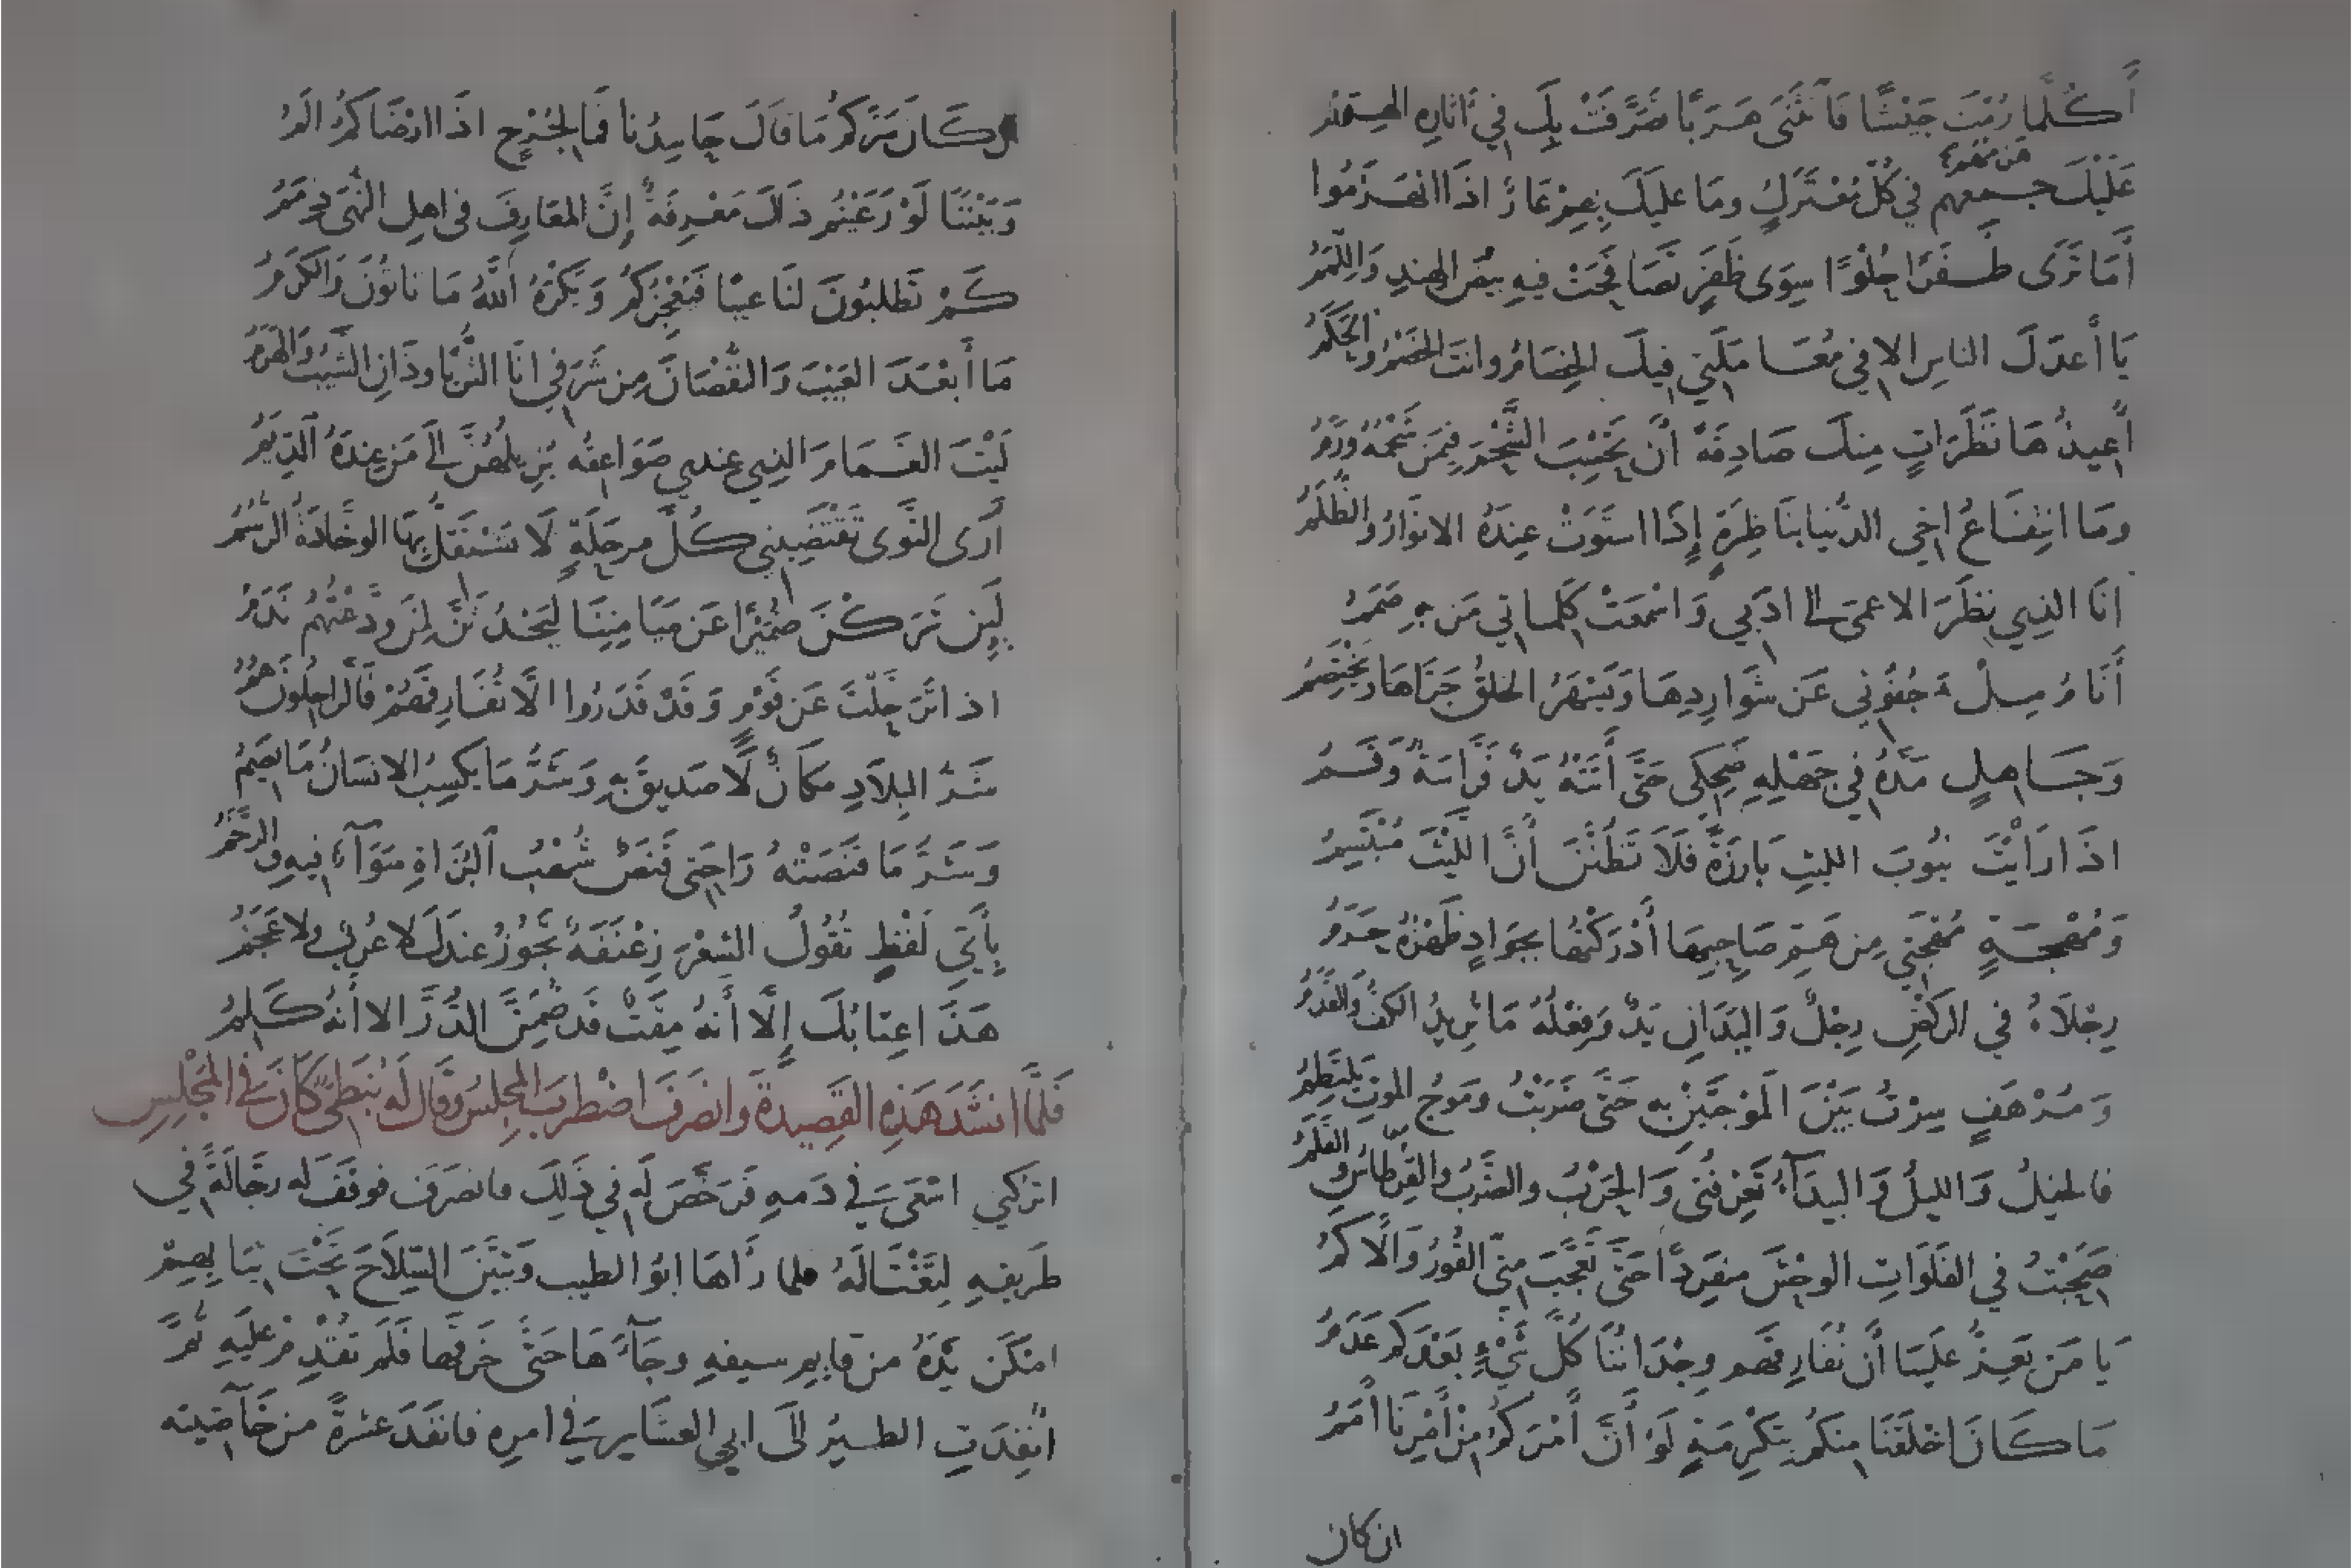 أَكُلَّمَا رُمْتَ جَيْشًا فَانْثَنَى هَرَبًا تَصَرَّفَتْ بِكَ فِي آثَارِهِ الهِمَمُ
عَلَيْكَ هَزْمُهُمُ فِي كُلِّ مُعْتَرَكٍ وَمَا عَلَيْكَ بِهِمْ عَارٌ اذَا انْهَزَمُوا
أَمَا تَرَى ظَفَرًا حُلْوًا سِوَى ظَفَرٍ تَصَافَحَتْ فِيهِ بِيضُ الهِندِ وَاللِّمَمُ
يَا أَعدَلَ الناسِ الا فِي مُعَامَلَتِي فِيكَ الخِصَامُ وانتَ الخَصْمُ وَالحَكَمُ
أُعِيذُهَا نَظَرَاتٍ مِنكَ صَادِقَةً أَنْ تَحْسِبَ الشَّحْمَ فِيمَنْ شَحْمُهُ وَرَمُ
وَمَا انتِفَاعُ اخِي الدُّنيا بنَاظِرِهِ إِذَا استَوَتْ عِندَهُ الانوَارُ وَالظُّلَمُ
انَا الذِي نظَرَ الاعمَى الى ادَبِي وَاسْمَعَتْ كَلِماتِي مَن بِهِ صَمَمُ
أَنَا مُ مِلْءَ جُفُونِي عَن شَوَارِدِهَا وَيَسْهَرُ الخلقُ جَرَّاهَا وَيَخْتَصِمُ
وَجَاهلٍ مَدَّهُ فِي جَهْلِهِ ضَحِكِي حَتَّى أَتَتْهُ يَدٌ فَرَّاسَةٌ وَفَمُ
اذَا رَايْتَ نيُوبَ الليثِ بَارِزَةً فَلَا تَظُنَّنَّ أَنَّ اللَّيْثَ مُبْتَسِمُ
وَمُهْجَةٍ مُهْجَتِي مِن هَمِّ صَاحِبِهَا أَدْرَكْتُهَا بجَوَادٍ ظَهْرُهُ حَرَمُ
رِجْلَاهُ فِي الركْضِ رِجْلٌ وَاليَدَانِ يَدٌ وَفِعْلُهُ مَا تُرِيدُ الكَفُّ وَالقَدَمُ
وَمُرْهَفٍ سِرْتُ بَيْنَ المَوْجَتَيْنِ بِهِ حَتَّى ضَرَبْتُ وَمَوْجُ المَوْتِ يَلتَطِمُ
فالخيلُ وَالليلُ وَالبيدَاءُ تَعْرِفُنِي وَالحَرْبُ والضَّرْبُ والقِرْطاسُ وَالقَلَمُ
صَحِبْتُ فِي الفَلَوَاتِ الوحْشَ منفَرِدًا حَتَّى تَعَجَّبَ مِنِّي القُورُ وَالاكَمُ
يَا مَن يَعِزُّ عَلَيْنا أَن نُفَارِقَهُم وِجْدَانُنَا كُلَّ شَيْءٍ بَعْدَكُم عَدَمُ
مَا كَانَ اخْلَقَنَا مِنكُمْ بِتَكْرِمَةٍ لَوْ أَنَّ أَمْرَكُمُ مِنْ أَمْرِنَا أَمَمُ
ان كان
كَانَ سَرَّكُمُ مَا قَالَ حَاسِدُنا فَمَا لِجُرْحٍ اذَا ارْضَاكُمُ المُ
وَبَيْنَنَا لَوْ رَعَيْتُم ذَاكَ مَعْرِفَةٌ إِنَّ المَعَارِفَ فى اهلِ النُّهَى ذِمَمُ
كَمْ تَطلبُونَ لَنَا عيبًا فَيُعْجِزُكُمْ وَيَكْرَهُ اللَّهُ مَا تاتُونَ وَالكَرَمُ
مَا أَبْعَدَ العَيْبَ وَالنُّقْصَانَ مِن شَرَفِي انَا الثُّرَيَّا وذَانِ الشَّيْبُ وَالهَرَمُ
لَيْتَ الغَمَامَ الذِي عِندِي صَوَاعِقُه يُزِيلُهُنَّ الى مَن عِندَهُ الدِّيَمُ
أَرَى النَّوَى تَقْتَضِينِي كُلَّ مرحَلَةٍ لَا تَسْتَقِلُّ بِهَا الوخَّادَةُ الرُّسُمُ
لَئِن تَرَكْنَ ضُمَيْرًا عَن مَيَامِنِنَا لَيَحْدُثَنَّ لِمَن وَدَّعْتُهُمْ نَدَمُ
اذا تَرَحَّلْتَ عَن قَوْمٍ وَقَدْ قَدَرُوا الَّا تُفَارِقَهُمْ فَالراحِلُونَ هُمُ
شَرُّ البِلَادِ مَكَانٌ لَا صَديقَ بِهِ وَشَرُّ مَا يَكسِبُ الانسَانُ مَا يَصِمُ
وَشَرُّ مَا قَنَصَتْهُ رَاحَتِى قَنَصٌ شُهْبُ البُزَاةِ سَوَآءٌ فِيهِ وَالرَّخَمُ
بِأَيِّ لَفْظٍ تَقُولُ الشعْرَ زِعْنَفَةٌ تَجُوزُ عندَكَ لا عُرْبٌ ولا عَجَمُ
هَذَا عِتَابُكَ إِلَّا أَنهُ مِقَةٌ قَد ضُمِّنَ الدُّرَّ الا أَنهُ كَلِمُ
فَلَمَّا انشَدَ هَذِهِ القَصِيدَةَ وَانصَرَفَ اضْطرَبَ المجْلِسُ وَقَالَ لَهُ نَبَطِيٌّ كَانَ فِي المَجْلِسِ
اتركنِي اسْعَى فِي دَمهِ فَرَخَّصَ لَهُ فِي ذَلِكَ فانصَرَف فوَقَفَ له رجَّالَةٌ فِي
طَرِيقِهِ لِتَغْتَالَهُ فلما رَأَهَا ابُو الطيب وَتبَيَّنَ السِّلَاحَ تَحْتَ ثيَابِهِمْ
امْكَنَ يَدَهُ من قايِمِ سيفِهِ وجَآءَهَا حَتَّى خَرَقَها فَلَم تقْدِمْ عَليهِ ثُمَّ
أَنفَذَتِ الطيرُ الَى ابِي العشَايرِ فِي امرِه فانفَذَ عشرةً من خَآصَّتِه